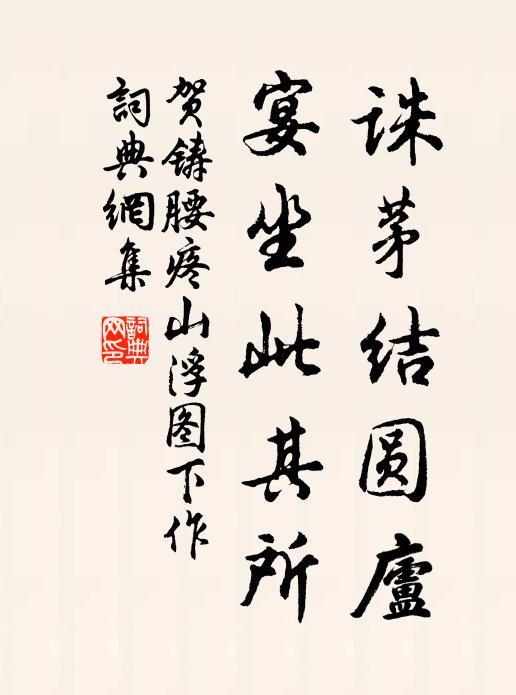 诛茅结圆廬
宴坐此其所
贺铸腰疼山浮图下作
詞典網集
詞典网印